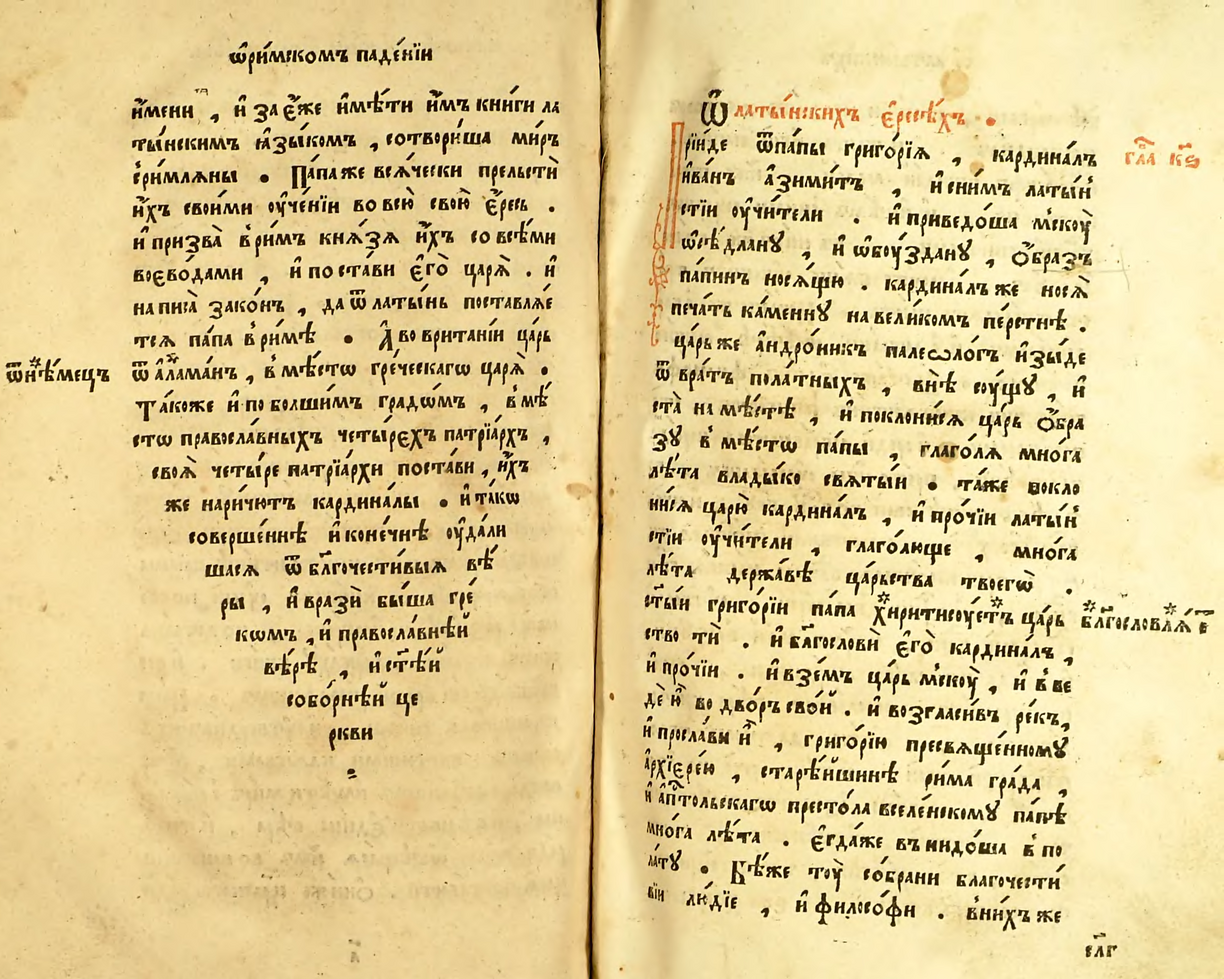 ѡ҆ри́мскомъ паде́нїи
и҆мени , и҆ за є҆́же и҆мѣ́ти и҆̀мъ кни́ги ла
ты́нскимъ ꙗ҆зы́комъ , сотвори́ша ми́ръ
с̾ри́млѧны • Папа же всѧ́чески прельстѝ
и҆́хъ свои́ми оу҆че́нїи во всю̀ свою̀ є҆́ресь .
и҆ призва̀ в̾ри́мъ кнѧ́зѧ и҆́хъ со всѣ́ми
воєво́дами , и҆ поста́ви є҆го̀ царѧ̀ . и҆
написа̀ зако́нъ , да ѿ латы́нь поставлѧ́е
тсѧ па́па в̾ри́мѣ • А҆ во врита́нїи ца́рь
ѿнѣ́мецъ
ѿ а҆лама́нъ , в̾мѣ́стѡ гре́ческагѡ царѧ̀ •
та́коже и҆ по бо́лшимъ градѡ́мъ , в̾мѣ́
стѡ правосла́вныхъ четы́рєхъ патрїа́рхъ ,
своѧ̀ четы́ре патрїа́рхи поста́ви , и҆́хъ
же нарича́ютъ кардина́лы • и҆ та́кѡ
соверше́ннѣ и҆ коне́чнѣ оу҆дали́
шасѧ ѿ бл҃гочести́выѧ вѣ́
ры , и҆ вразѝ бы́ша гре́
кѡмъ , и҆ правосла́внѣй
вѣ́рѣ , и҆ ст҃ѣ́й
собо́рнѣй це
ркви
Ѡ҆ латы́нскихъ є҆ресѣ́хъ •
Прїи́де ѿ па́пы григо́рїѧ , кардина́лъ
гла҃ кѕ҃
и҆ва́нъ а҆зими́тъ , и҆ сни́мъ латы́н
стїи оу҆чи́тели . и҆ приведо́ша мскоу̀
ѡ҆сѣ́длану , и҆ ѡ҆боу́здану , ѻ҆́бразъ
па́пинъ носѧ́щю . кардина́лъ же носѧ̀
печа́ть ка́менну на вели́комъ пе́рстнѣ .
ца́рь же а҆ндро́никъ палеѡло́гъ и҆зы́де
ѿ вра́тъ пола́тныхъ , внѣ̀ соу́щу , и҆
ста̀ на мѣ́стѣ , и҆ поклони́сѧ ца́рь ѻ҆́бра
зу в̾мѣ́стѡ па́пы , глаго́лѧ мно́га
лѣ́та влады́ко свѧты́и • та́же покло
ни́сѧ царю̀ кардина́лъ , и҆ про́чїи латы́н
стїи оу҆чи́тели , глаго́люще , мно́га
лѣ́та держа́вѣ ца́рьства твоегѡ̀ .
ст҃ы́и григо́рїи па́па хиритисоу́етъ ца́рь
бл҃гословлѧ́є
ство тѝ . и҆ бл҃гословѝ є҆го̀ кардина́лъ ,
и҆ про́чїи . и҆ взе́мъ ца́рь мскоу̀ , и҆ в̾ве
дѐ и҆̀ во дво́ръ сво́й . и҆ возгласи́въ ре́къ,
и҆ просла́ви и҆̀ , григо́рїю пресвѧще́нному
а҆рхїєре́ю , старѣ́йшинѣ ри́ма гра́да ,
и҆ а҆пⷭ҇тольскагѡ престо́ла вселе́нскому па́пѣ
мно́га лѣ́та . є҆гда́же въ нидо́ша в̾по
ла́ту • Бѣ́же тоу̀ со́брани благочести́
вїи лю́дїе , и҆ філосо́фи . в̾ни́хъ же
слг